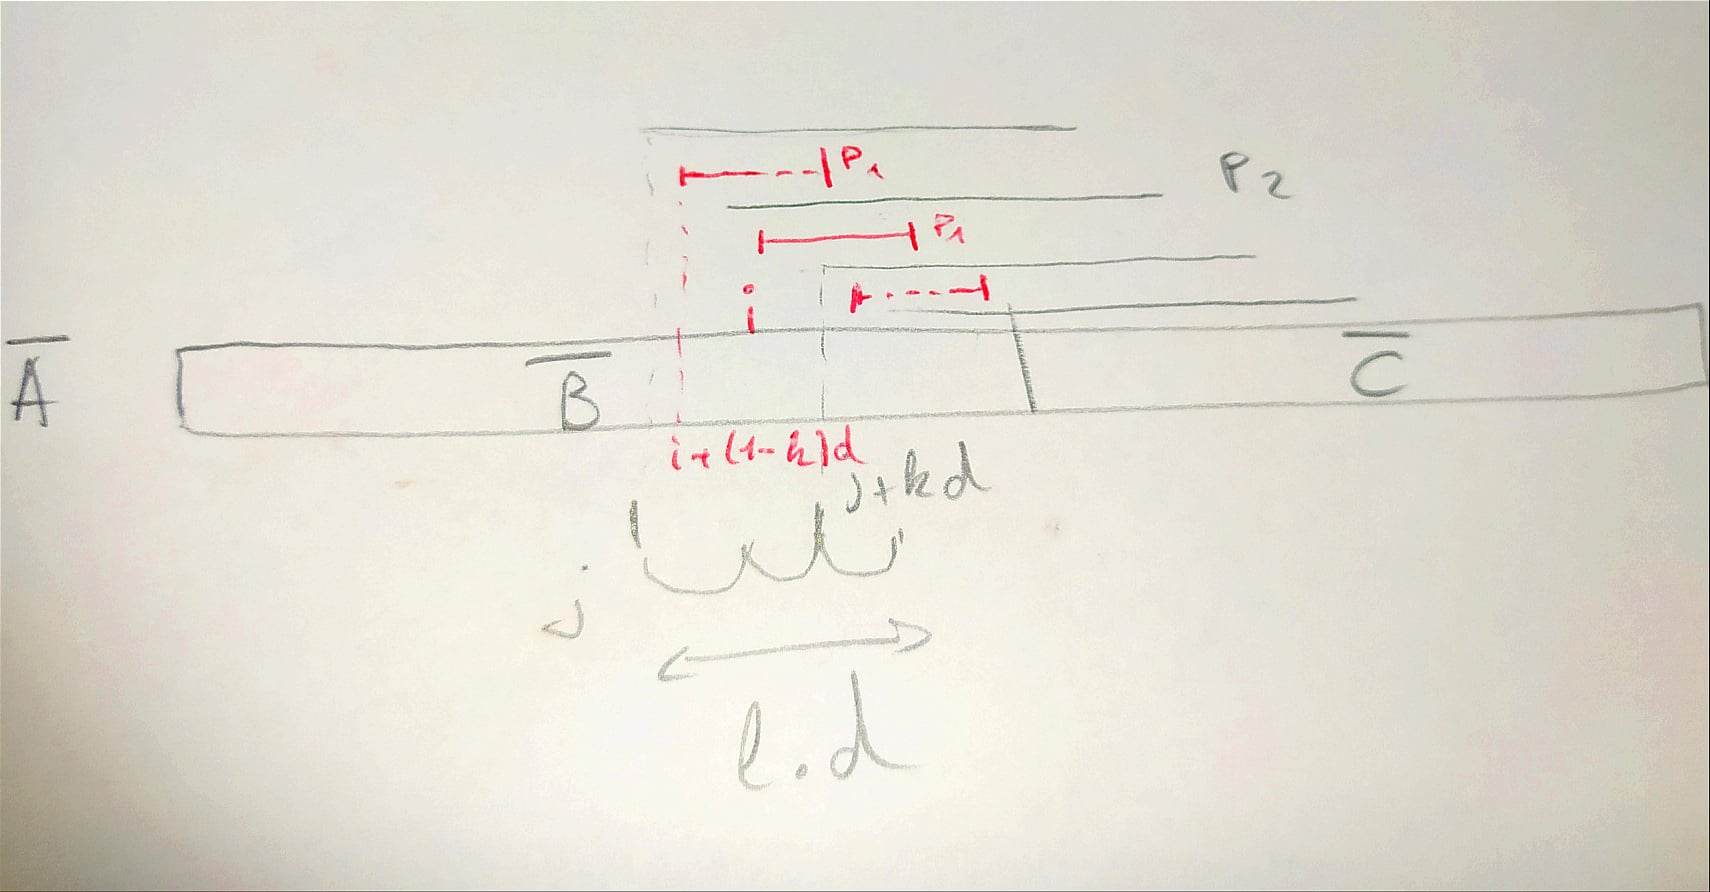 P₁
P₂
P₁
i
A̅ B̅ C̅
i+(1-k)d
j+kd
j
l.d